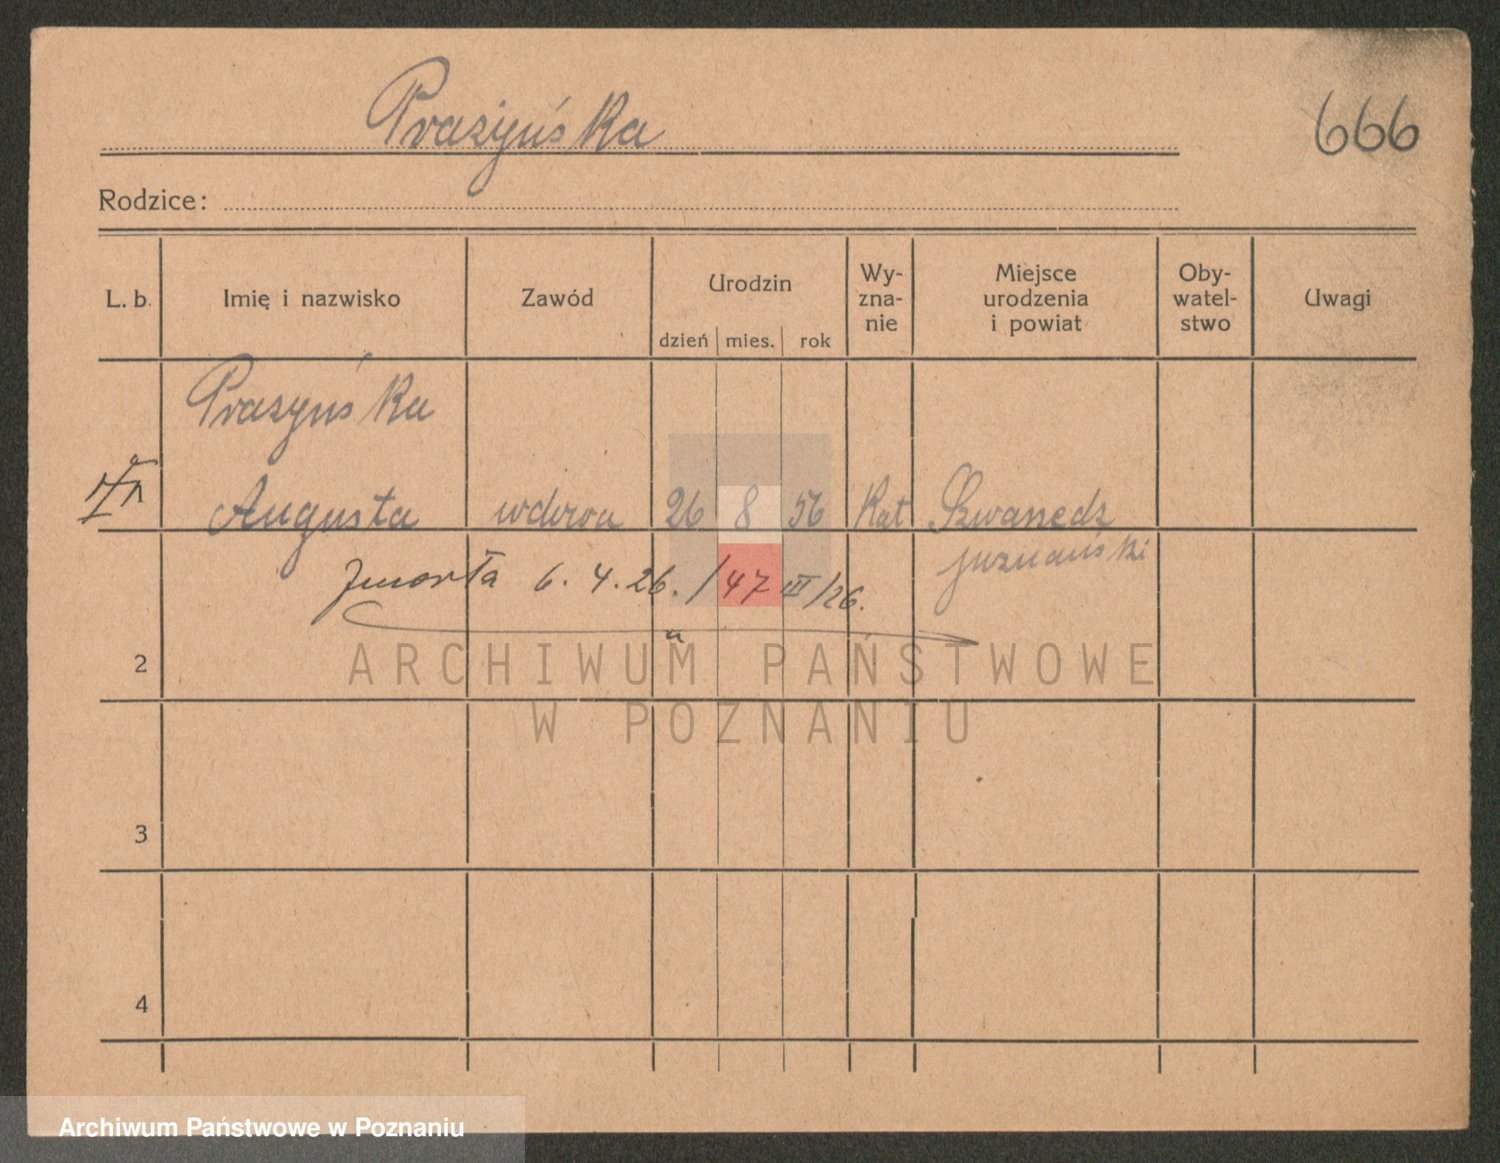 Prażyńska
666
Rodzice:
L. b. Imię i nazwisko Zawód Urodzin dzień mies. rok Wy-zna-nie Miejsce urodzenia i powiat Oby-watel-stwo Uwagi
Prazyńska
1 Augusta wdowa 26 8 56 Kat
Zmarła 6. 4. 26. /47 III/26.
2
ARCHIWUM PAŃSTWOWE
W POZNANIU
3
4
Archiwum Państwowe w Poznaniu